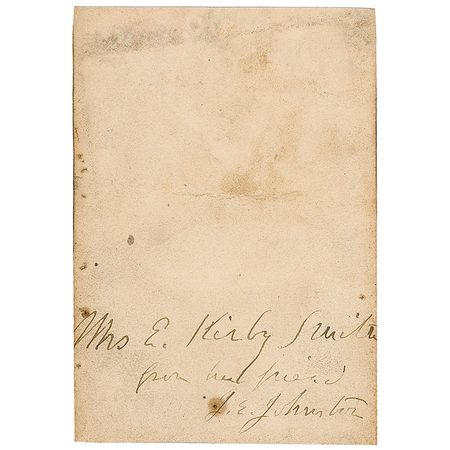 Mrs E. Kirby Smith
from her friend
J. E. Johnston